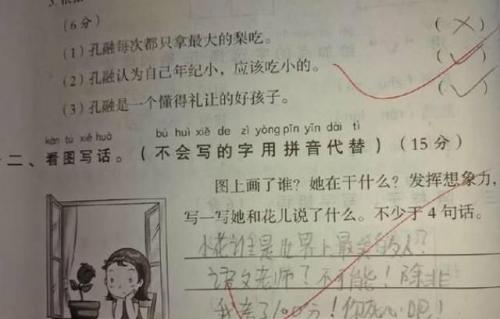 (6分)
(1)孔融每次都只拿最大的梨吃。 (×)
(2)孔融认为自己年纪小,应该吃小的。 (✓)
(3)孔融是一个懂得礼让的好孩子。 (✓)
kàn tú xiě huà bù huì xiě de zì yòng pīn yīn dài tì
二、看图写话。(不会写的字用拼音代替)(15分)
图上画了谁?她在干什么?发挥想象力,
写一写她和花儿说了什么。不少于4句话。
花谁是世界上最美的人?
语文老师!不可能!除非
我考了100分!你死心吧!